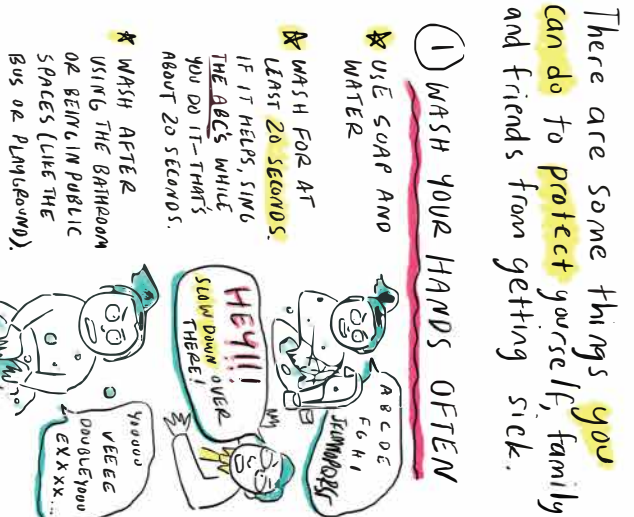 There are some things you
can do to protect yourself, family
and friends from getting sick.
1 WASH YOUR HANDS OFTEN
USE SOAP AND
WATER
WASH FOR AT
LEAST 20 SECONDS.
IF IT HELPS, SING
THE ABC'S WHILE
YOU DO IT-THAT'S
ABOUT 20 SECONDS.
WASH AFTER
USING THE BATHROOM
OR BEING IN PUBLIC
SPACES (LIKE THE
BUS OR PLAYGROUND).
A B C D E
F G H I
HEY!!!
SLOW DOWN OVER
THERE!
YOUUUU
VEEEE
DOUBLEYOUU
EXXXX...